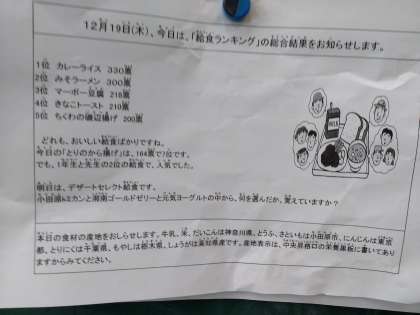 12月19日(木)、今日は、「給食ランキング」の総合結果をお知らせします。
1位 カレーライス 330票
2位 みそラーメン 300票
3位 マーボー豆腐 218票
4位 きなこトースト 210票
5位 ちくわの磯辺揚げ 200票
どれも、おいしい給食ばかりですね。
今日の「とりのから揚げ」は、164票で7位です。
でも、1年生と先生の2位の給食で、人気でした。
明日は、デザートセレクト給食です。
小田原みカンと湘南ゴールドゼリーと元気ヨーグルトの中から、何を選んだか、覚えていますか?
本日の食材の産地をおしらせします。牛乳、米、だいこんは神奈川県、とうふ、さといもは小田原市、にんじんは東京
都、とりにくは千葉県、もやしは栃木県、しょうがは高知県産です。産地表示は、中央昇降口の栄養黒板に書いてあり
ますからみてください。